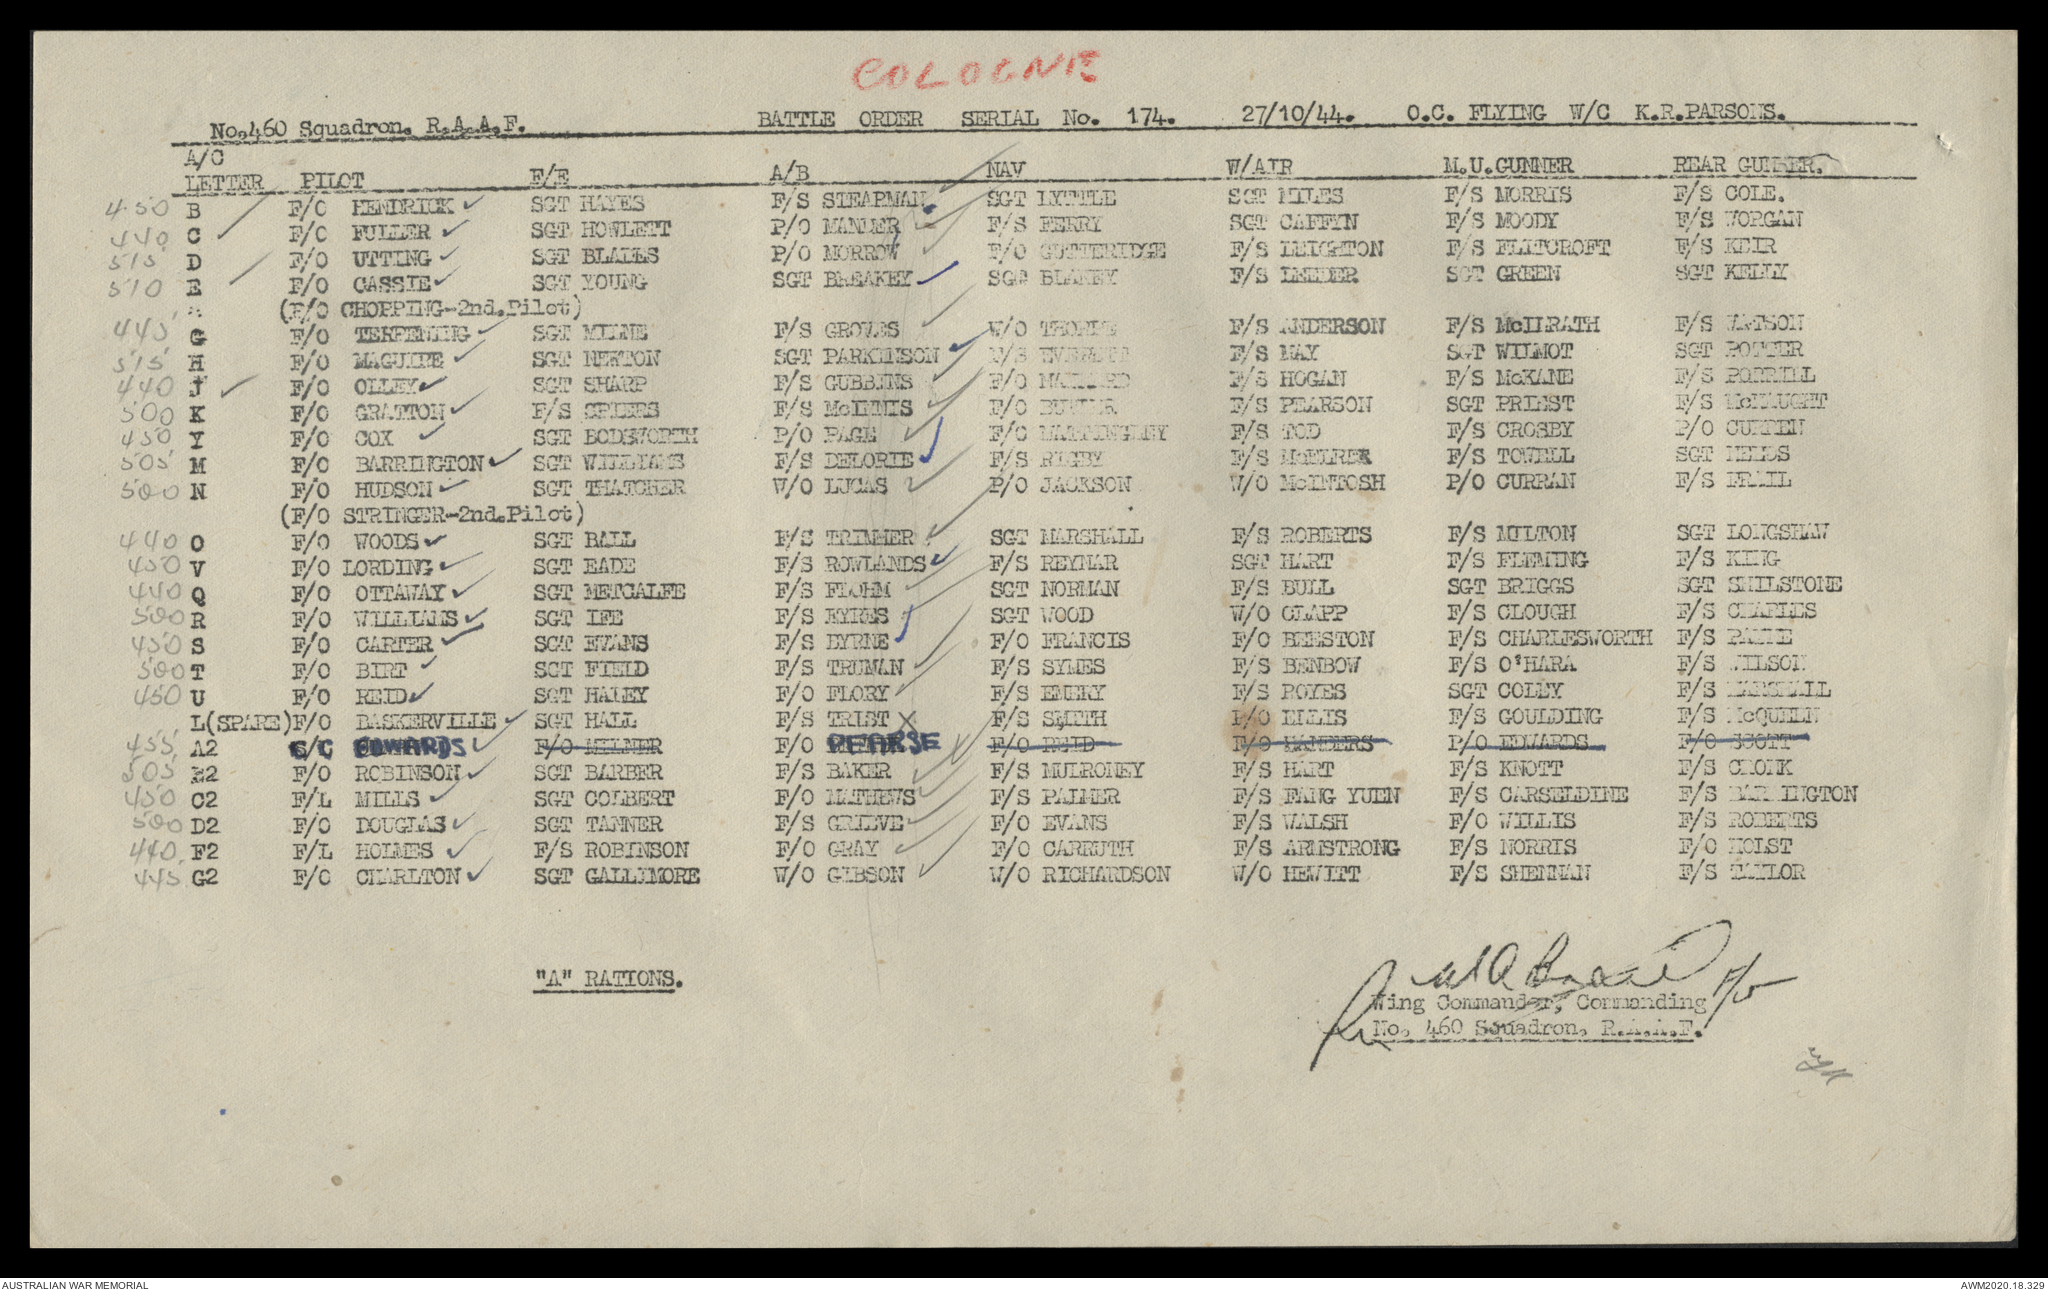 COLOGNE
No.460 Squadron. R.A.A.F. BATTLE ORDER SERIAL No. 174. 27/10/44. O.C. FLYING W/C K.R.PARSONS.
A/C
LETTER PILOT F/E A/B NAV W/AIR M.U.GUNNER REAR GUNNER.
450 B F/O HENDRICK SGT HAYES F/S STEARMAN SGT LYTTLE SGT MILES F/S MORRIS F/S COLE.
440 C F/O FULLER SGT HOWLETT P/O MANLER F/S PERRY SGT CAFFYN F/S MOODY F/S WORGAN
515 D F/O UTTING SGT BLADES P/O MORROW F/O GUTTERIDGE F/S LEIGHTON F/S FLITCROFT F/S KEIR
510 E F/O CASSIE SGT YOUNG SGT BREAKEY SGT BLAKEY F/S LEEDER SGT GREEN SGT KELLY
(F/O CHOPPING-2nd.Pilot)
445 G F/O TERPENING SGT MILNE F/S GROVES W/O F/S ANDERSON F/S McILRATH F/S WATSON
515 H F/O MAGUIRE SGT NEWTON SGT PARKINSON F/S F/S MAY SGT WILMOT SGT POTTER
440 J F/O OLLEY SGT SHARP F/S GUBBINS F/O F/S HOGAN F/S McKANE F/S PORRILL
500 K F/O GRATTON F/S SPIERS F/S McINNIS F/O F/S PEARSON SGT PRIEST F/S McNAUGHT
450 Y F/O COX SGT BODSWORTH P/O PAGE F/O MATTINGLEY F/S TOD F/S CROSBY P/O CURREN
505 M F/O BARRINGTON SGT WILLIAMS F/S DELORIE F/S RIGBY F/S F/S TOWELL SGT
500 N F/O HUDSON SGT THATCHER W/O LUCAS P/O JACKSON W/O McINTOSH P/O CURRAN F/S FRAIL
(F/O STRINGER-2nd.Pilot)
440 O F/O WOODS SGT BALL F/S TRIMMER SGT MARSHALL F/S ROBERTS F/S MILTON SGT LONGSHAW
450 V F/O LORDING SGT EADE F/S ROWLANDS F/S REYNAR SGT HART F/S FLEMING F/S KING
440 Q F/O OTTAWAY SGT METCALFE F/S FROHM SGT NORMAN F/S BULL SGT BRIGGS SGT SHILSTONE
500 R F/O WILLIAMS SGT IFE F/S EYRES SGT WOOD W/O CLAPP F/S CLOUGH F/S CHARLES
450 S F/O CARTER SGT EVANS F/S BYRNE F/O FRANCIS F/O BEESTON F/S CHARLESWORTH F/S
500 T F/O BIRT SGT FIELD F/S TRUMAN F/S SYMES F/S BENBOW F/S O'HARA F/S WILSON
450 U F/O REID SGT HALEY F/O FLORY F/S EMERY F/S ROYES SGT COLEY F/S MARSHALL
L(SPARE) F/O BASKERVILLE SGT HALL F/S TRIST F/S SMITH P/O ELLIS F/S GOULDING F/S McQUEEN
455 A2 G/C EDWARDS F/O MILNER F/O PEARSE F/O REID F/O MANDERS P/O EDWARDS F/O SCOTT
505 B2 F/O ROBINSON SGT BARBER F/S BAKER F/S MULRONEY F/S HART F/S KNOTT F/S CRONK
450 C2 F/L MILLS SGT COLBERT F/O MATHEWS F/S PALMER F/S FANG YUEN F/S CARSELDINE F/S BARRINGTON
500 D2 F/O DOUGLAS SGT TANNER F/S GRIEVE F/O EVANS F/S WALSH F/O WILLIS F/S ROBERTS
440 F2 F/L HOLMES F/S ROBINSON F/O GRAY F/O CARRUTH F/S ARMSTRONG F/S NORRIS F/O HOLST
445 G2 F/O CHARLTON SGT GALLIMORE W/O GIBSON W/O RICHARDSON W/O HEWITT F/S SHENNAN F/S TAILOR
"A" RATIONS.
Wing Commander, Commanding
No. 460 Squadron, R.A.A.F.
AUSTRALIAN WAR MEMORIAL AWM2020.18.329